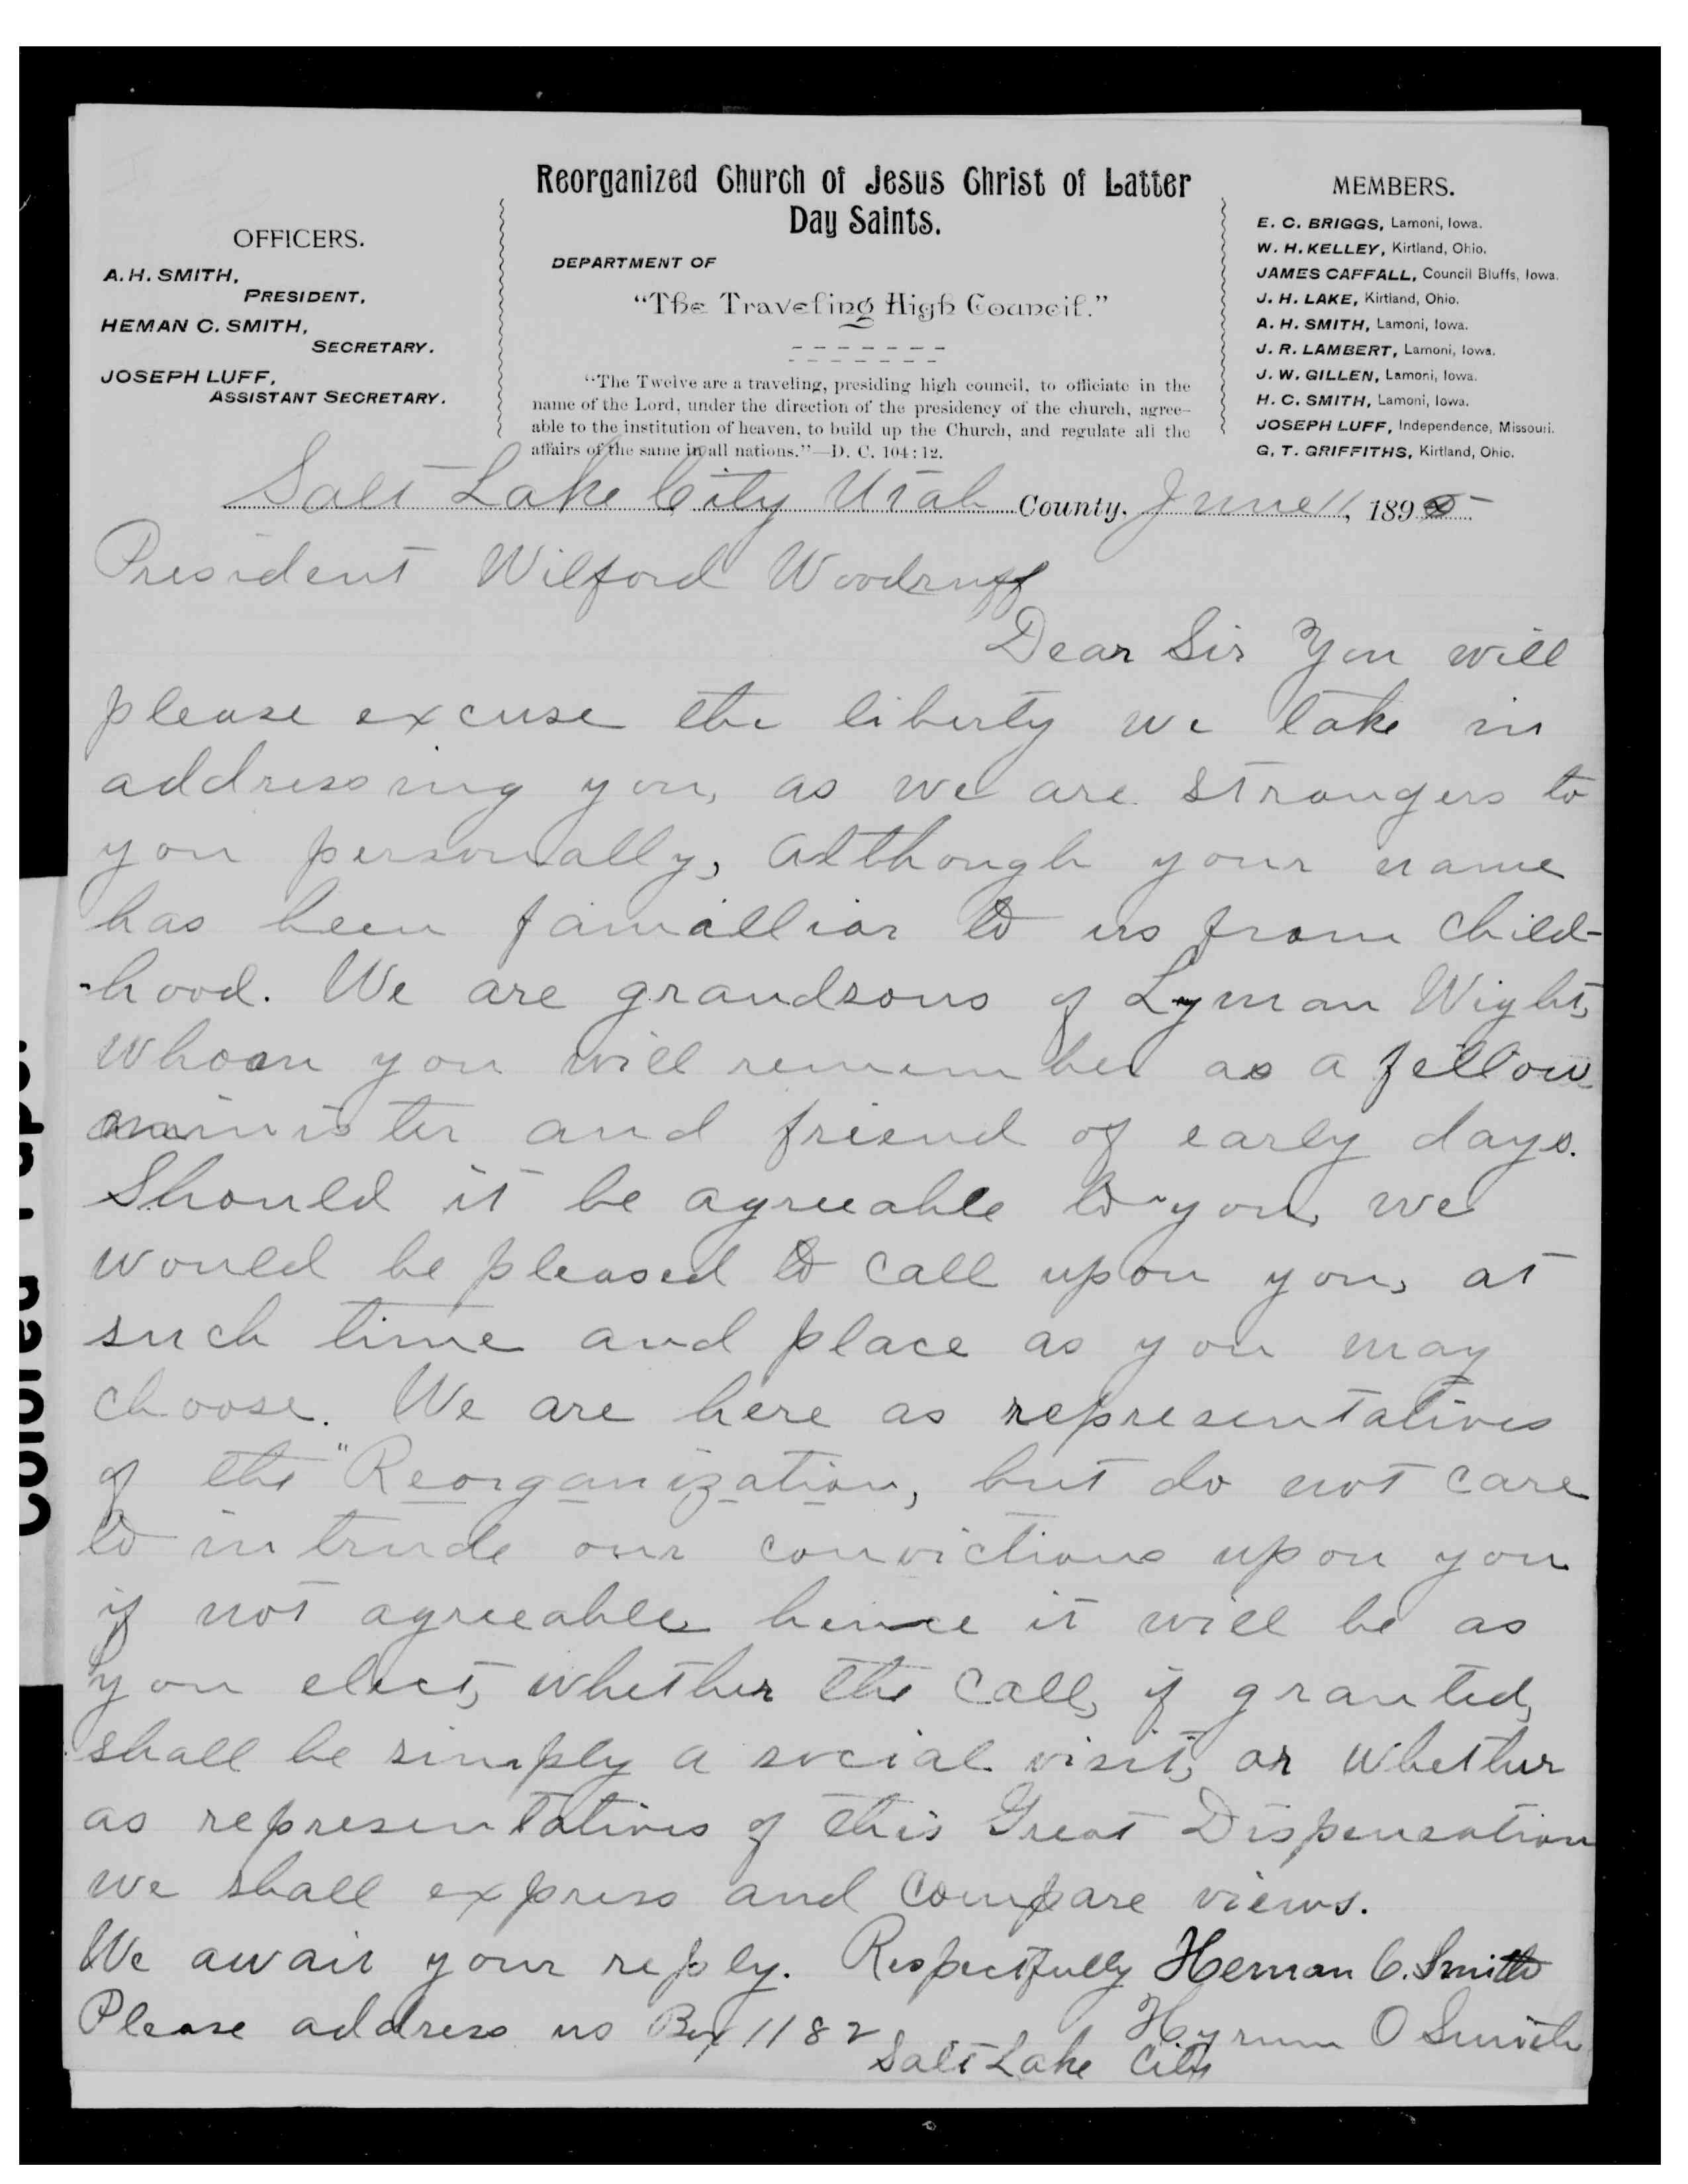 Reorganized Church of Jesus Christ of Latter
Day Saints.
DEPARTMENT OF
"The Traveling High Council."
"The Twelve are a traveling, presiding high council, to officiate in the
name of the Lord, under the direction of the presidency of the church, agree-
able to the institution of heaven, to build up the Church, and regulate all the
affairs of the same in all nations."—D. C. 104:12.
OFFICERS.
A. H. SMITH,
PRESIDENT,
HEMAN C. SMITH,
SECRETARY.
JOSEPH LUFF,
ASSISTANT SECRETARY.
MEMBERS.
E. C. BRIGGS, Lamoni, Iowa.
W. H. KELLEY, Kirtland, Ohio.
JAMES CAFFALL, Council Bluffs, Iowa.
J. H. LAKE, Kirtland, Ohio.
A. H. SMITH, Lamoni, Iowa.
J. R. LAMBERT, Lamoni, Iowa.
J. W. GILLEN, Lamoni, Iowa.
H. C. SMITH, Lamoni, Iowa.
JOSEPH LUFF, Independence, Missouri.
G. T. GRIFFITHS, Kirtland, Ohio.
Salt Lake City Utah County. June 11, 189
President Wilford Woodruff
Dear Sir You will
please excuse the liberty we take in
addressing you, as we are strangers to
you personally, Although your name
has been familliar to us from child-
-hood. We are grandsons of Lyman Wight,
whom you will remember as a fellow
minister and friend of early days.
Should it be agreeable to you, we
would be pleased to call upon you, at
such time and place as you may
choose. We are here as representatives
of the "Reorganization, but do not care
to intrude our convictions upon you
if not agreeable hence it will be as
you elect, whether the call, if granted,
shall be simply a social visit, or whether
as representatives of this Great Dispensation
we shall express and compare views.
We await your reply. Respectfully Heman C. Smith
Please address us Box 1182 Hyrum O Smith
Salt Lake City